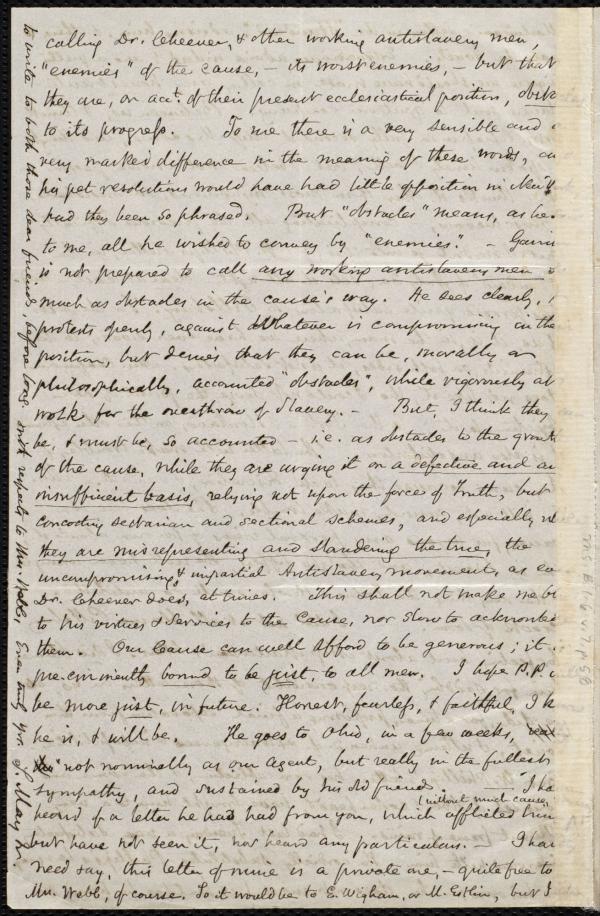 calling Dr. Cheever, & other working antislavery men,
"enemies" of the cause, – its worst enemies, – but that
they are, on acct. of their present ecclesiastical position, obst
to its progress. To me there is a very sensible and
very marked difference in the meaning of these words, an
his pet resolutions would have had little opposition in New
had they been so phrased. But "obstacles" means, as he
to me, all he wished to convey by "enemies". – Garri
is not prepared to call any working antislavery men
much as obstacles in the cause's way. He sees clearly,
protests openly, against whatever is compromising in the
position, but denies that they can be, morally or
philosophically, accounted "obstacles", while vigorously at
work for the overthrow of Slavery. – But, I think they
be, & must be, so accounted – i.e. as obstacles to the growt
of the cause, while they are urging it on a defective and an
insufficient basis, relying not upon the force of Truth, but
concocting sectarian and sectional schemes, and especially
they are misrepresenting and slandering the true, the
uncompromising & impartial Antislavery movement, as
Dr. Cheever does, at times. This shall not make me bl
to his virtues & services to the Cause, nor slow to acknowled
them. Our Cause can well afford to be generous; it
pre-eminently bound to be just, to all men. I hope P.P.
be more just, in future. Honest, fearless, & faithful, I k
he is, & will be. He goes to Ohio, in a few weeks,
not nominally as our Agent, but really in the fullest
sympathy, and sustained by his old friends. – I ha
heard of a letter he had had from you, which afflicted him (without much cause,
but have not seen it, nor heard any particulars. – I hav
need say, this letter of mine is a private one, – quite free to
Mr. Webb, of course. So it would be to E. Wigham, or M. Estlin, but I
to write to both those dear friends, before long. With respects to Mr. Webb, Ever truly yrs. S. May Jr.
Ms.B.1.6 v.7 p.58